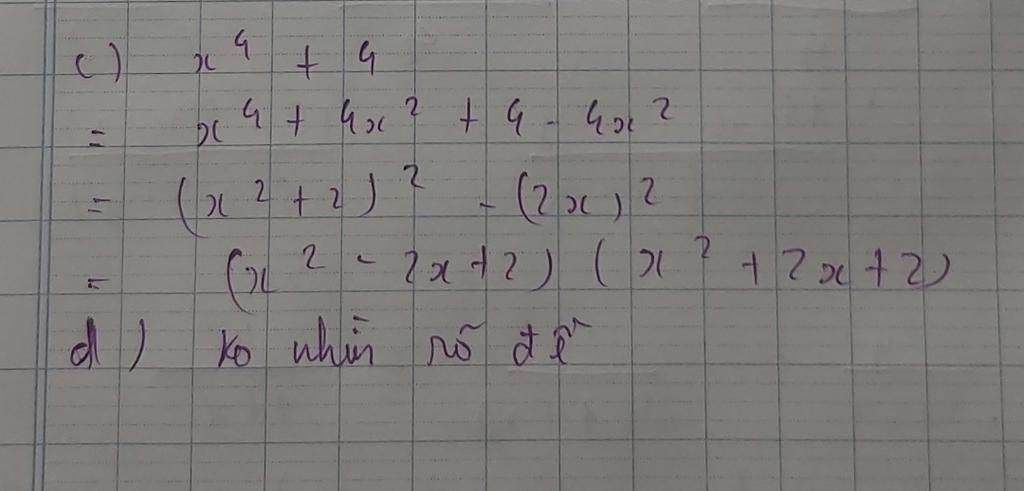 c) x⁴ + 4
= x⁴ + 4x² + 4 - 4x²
= (x² + 2)² - (2x)²
= (x² - 2x + 2) (x² + 2x + 2)
d) ko nhìn rõ đề